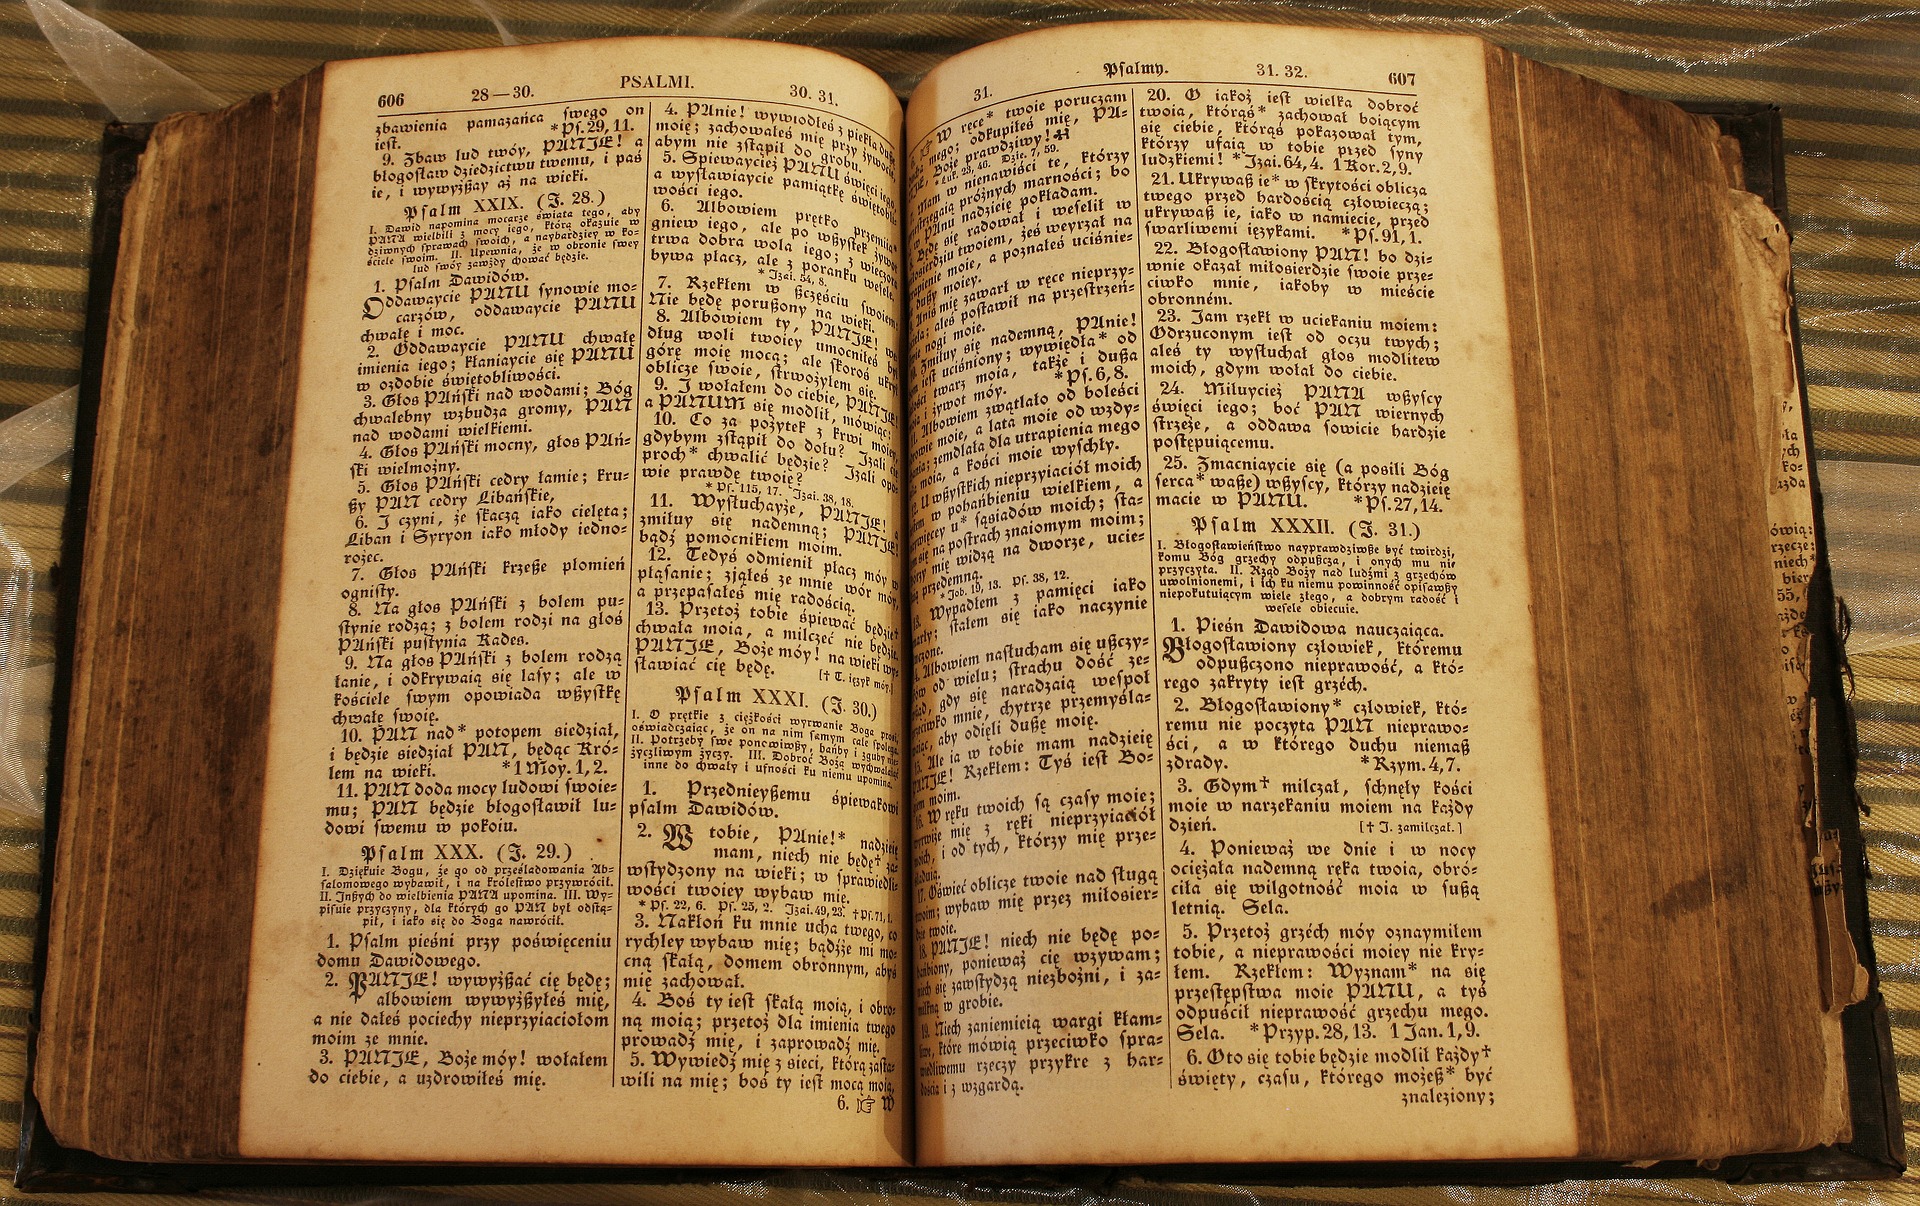 606 28—30. PSALMI. 30. 31.
zbawienia pamazańca ſwego on
ieſt. *Pſ. 29, 11.
9. Zbaw lud twóy, PANIE! a
błogoſław dziedzictwu twemu, i paś
ie, i wywyżßay aż na wieki.
Pſalm XXIX. (J. 28.)
I. Dawid napomina mocarze świata tego, aby
PANA wielbili z mocy iego, którą okazuie w
dziwnych ſprawach ſwoich, a naybardziey w ko-
ściele ſwoim. II. Upewnia, że w obronie ſwey
lud ſwóy zawżdy chować będzie.
1. Pſalm Dawidów.
Oddawaycie PANU ſynowie mo-
carzów, oddawaycie PANU
chwałę i moc.
2. Oddawaycie PANU chwałę
imienia iego; kłaniaycie się PANU
w ozdobie świętobliwości.
3. Głos PAńſki nad wodami; Bóg
chwalebny wzbudza gromy, PAN
nad wodami wielkiemi.
4. Głos PAńſki mocny, głos PAń-
ſki wielmożny.
5. Głos PAńſki cedry łamie; kru-
ßy PAN cedry Libańſkie,
6. I czyni, że ſkaczą iako cielęta;
Liban i Syryon iako młody iedno-
rożec.
7. Głos PAńſki krzeße płomień
ogniſty.
8. Na głos PAńſki z bolem pu-
ſtynie rodzą; z bolem rodzi na głos
PAńſki puſtynia Kades.
9. Na głos PAńſki z bolem rodzą
łanie, i odkrywaią się laſy; ale w
kościele ſwym opowiada wßyſtkę
chwałę ſwoię.
10. PAN nad* potopem siedział,
i będzie siedział PAN, będąc Kró-
lem na wieki. *1 Moy. 1, 2.
11. PAN doda mocy ludowi ſwoie-
mu; PAN będzie błogoſławił lu-
dowi ſwemu w pokoiu.
Pſalm XXX. (J. 29.)
I. Dziękuie Bogu, że go od prześladowania Ab-
ſalomowego wybawił, i na króleſtwo przywrócił.
II. Inßych do wielbienia PANA upomina. III. Wy-
piſuie przyczyny, dla których go PAN był odſtą-
pił, i iako się do Boga nawrócił.
1. Pſalm pieśni przy poświęceniu
domu Dawidowego.
2. PANIE! wywyżßać cię będę;
albowiem wywyżßyłeś mię,
a nie dałeś pociechy nieprzyiaciołom
moim ze mnie.
3. PANIE, Boże móy! wołałem
do ciebie, a uzdrowiłeś mię.
4. PAnie! wywiodłeś z piekła dußę
moię; zachowałeś mię przy żywocie,
abym nie zſtąpił do grobu.
5. Spiewaycież PANU święci iego,
a wyſławiaycie pamiątkę świętobli-
wości iego.
6. Albowiem prętko przemiia
gniew iego, ale po wßyſtek żywot
trwa dobra wola iego; z wieczora
bywa płacz, ale z poranku weſele.
*Izai. 54, 8.
7. Rzekłem w ßczęściu ſwoiem:
Nie będę porußony na wieki.
8. Albowiem ty, PANIE!
dług woli twoiey umocniłeś był
górę moię mocą; ale ſkoroś ukrył
oblicze ſwoie, ſtrwożyłem się.
9. I wołałem do ciebie, PANIE!
a PANUM się modlił, mówiąc:
10. Co za pożytek z krwi moiey,
gdybym zſtąpił do dołu? Izali cię
proch* chwalić będzie? Izali opo-
wie prawdę twoię?
*Pſ. 115, 17. Izai. 38, 18.
11. Wyſłuchayże, PANIE! a
zmiłuy się nademną; PANIE!
bądź pomocnikiem moim.
12. Tedyś odmienił płacz móy w
pląſanie; zjąłeś ze mnie wór móy,
a przepaſałeś mię radością.
13. Przetoż tobie śpiewać będzie†
chwała moia, a milczeć nie będzie.
PANIE, Boże móy! na wieki wy-
ſławiać cię będę. [† T. ięzyk móy.]
Pſalm XXXI. (J. 30.)
I. O prętkie z ciężkości wyrwanie Boga prosi,
oświadczaiąc, że on na nim ſamym całe ſpolega.
II. Potrzeby ſwe ponowiwßy, hańby i zguby nie-
życzliwym życzy. III. Dobroć Bożą wychwalaiąc,
inne do chwały i ufności ku niemu upomina.
1. Przednieyßemu śpiewakowi
pſalm Dawidów.
2. W tobie, PAnie!* nadzieię
mam, niech nie będę† za-
wſtydzony na wieki; w ſprawiedli-
wości twoiey wybaw mię.
*Pſ. 22, 6. Pſ. 25, 2. Izai. 49, 23. †Pſ. 71, 1.
3. Nakłoń ku mnie ucha twego, co
rychley wybaw mię; bądźże mi mo-
cną ſkałą, domem obronnym, abyś
mię zachował.
4. Boś ty ieſt ſkałą moią, i obro-
ną moią; przetoż dla imienia twego
prowadź mię, i zaprowadź mię.
5. Wywiedź mię z sieci, którą zaſta-
wili na mię; boś ty ieſt mocą moią.
6. ☞ W
31. Pſalmy. 31. 32. 607
☞ W ręce* twoie poruczam
mego; odkupiłeś mię, PA-
Boże prawdziwy!
*Łuk. 23, 46. Dzie. 7, 59.
Mam w nienawiści te, którzy
przeſtrzegaią próżnych marności; bo
w PAnu nadzieię pokładam.
Będę się radował i weſelił w
miłosierdziu twoiem, żeś weyrzał na
utrapienie moie, a poznałeś uciśnie-
dußy moiey.
Aniś mię zawarł w ręce nieprzy-
aleś poſtawił na przeſtrzeń-
nogi moie.
Zmiłuy się nademną, PAnie!
ieſt uciśniony; wywiędła* od
twarz moia, także i dußa
i żywot móy. *Pſ. 6, 8.
11. Albowiem zwątlało od boleści
moie, a lata moie od wzdy-
zemdlała dla utrapienia mego
moia, a kości moie wyſchły.
12. U wßyſtkich nieprzyiaciół moich
w pohańbieniu wielkiem, a
u* ſąsiadów moich; ſta-
się na poſtrach znaiomym moim;
mię widzą na dworze, ucie-
przedemną.
*Job. 19, 13. Pſ. 38, 12.
13. Wypadłem z pamięci iako
ſtałem się iako naczynie
14. Albowiem naſłucham się ußczy-
od wielu; ſtrachu dość ze-
gdy się naradzaią weſpoł
przeciwko mnie, chytrze przemyśla-
aby odięli dußę moię.
15. Ale ia w tobie mam nadzieię
PANIE! Rzekłem: Tyś ieſt Bo-
giem moim.
16. W ręku twoich ſą czaſy moie;
wyrwiże mię z ręki nieprzyiaciół
moich, i od tych, którzy mię prze-
śladuią.
17. Oświeć oblicze twoie nad ſługą
twoim; wybaw mię przez miłosier-
dzie twoie.
18. PANIE! niech nie będę po-
hańbiony, ponieważ cię wzywam;
niech się zawſtydzą niezbożni, i za-
milkną w grobie.
19. Niech zaniemieią wargi kłam-
liwe, które mówią przeciwko ſpra-
wiedliwemu rzeczy przykre z har-
dością i z wzgardą.
20. O iakoż ieſt wielka dobroć
twoia, którąś* zachował boiącym
się ciebie, którąś pokazował tym,
którzy ufaią w tobie przed ſyny
ludzkiemi! *Izai. 64, 4. 1 Kor. 2, 9.
21. Ukrywaß ie* w ſkrytości oblicza
twego przed hardością człowieczą;
ukrywaß ie, iako w namiecie, przed
ſwarliwemi ięzykami. *Pſ. 91, 1.
22. Błogoſławiony PAN! bo dzi-
wnie okazał miłosierdzie ſwoie prze-
ciwko mnie, iakoby w mieście
obronném.
23. Jam rzekł w uciekaniu moiem:
Odrzuconym ieſt od oczu twych;
aleś ty wyſłuchał głos modlitew
moich, gdym wołał do ciebie.
24. Miłuycież PANA wßyſcy
święci iego; boć PAN wiernych
ſtrzeże, a oddawa ſowicie hardzie
poſtępuiącemu.
25. Zmacniaycie się (a posili Bóg
ſerca* waße) wßyſcy, którzy nadzieię
macie w PANU. *Pſ. 27, 14.
Pſalm XXXII. (J. 31.)
I. Błogoſławieńſtwo nayprawdziwße być twirdzi,
komu Bóg grzechy odpußcza, i onych mu nie
przyczyta. II. Rząd Boży nad ludźmi z grzechów
uwolnionemi, i ich ku niemu powinność opiſawßy
niepokutuiącym wiele złego, a dobrym radość i
weſele obiecuie.
1. Pieśń Dawidowa nauczaiąca.
Błogoſławiony człowiek, któremu
odpußczono nieprawość, a któ-
rego zakryty ieſt grzéch.
2. Błogoſławiony* człowiek, któ-
remu nie poczyta PAN nieprawo-
ści, a w którego duchu niemaß
zdrady. *Rzym. 4, 7.
3. Gdym† milczał, ſchnęły kości
moie w narzekaniu moiem na każdy
dzień. [† J. zamilczał.]
4. Ponieważ we dnie i w nocy
ociężała nademną ręka twoia, obró-
ciła się wilgotność moia w ſußą
letnią. Sela.
5. Przetoż grzéch móy oznaymiłem
tobie, a nieprawości moiey nie kry-
łem. Rzekłem: Wyznam* na się
przeſtępſtwa moie PANU, a tyś
odpuścił nieprawość grzechu mego.
Sela. *Przyp. 28, 13. 1 Jan. 1, 9.
6. Oto się tobie będzie modlił każdy†
święty, czaſu, którego możeß* być
znaleziony;